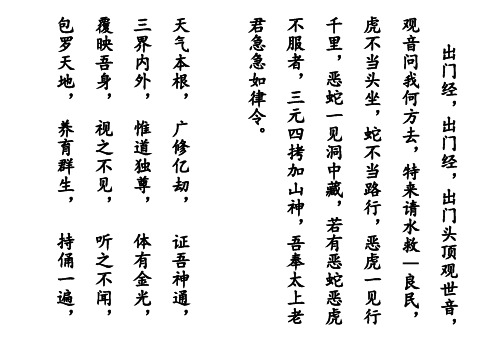 出门经，出门经，出门头顶观世音，
观音问我何方去，特来请水救一良民，
虎不当头坐，蛇不当路行，恶虎一见行
千里，恶蛇一见洞中藏，若有恶蛇恶虎
不服者，三元四拷加山神，吾奉太上老
君急急如律令。
天气本根，广修亿劫，证吾神通，
三界内外，惟道独尊，体有金光，
覆映吾身，视之不见，听之不闻，
包罗天地，养育群生，持俑一遍，